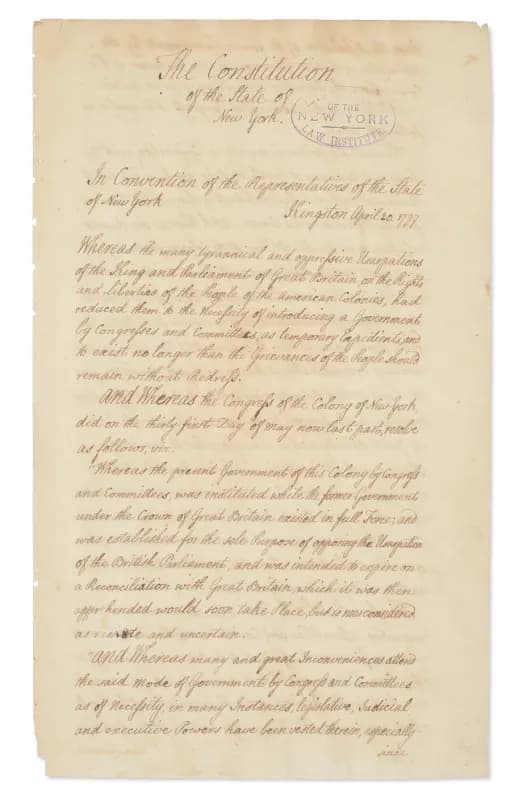 The Constitution
of the State of
New York.
OF THE
NEW YORK
LAW INSTITUTE
In Convention of the Representatives of the State
of New York
Kingston April 20. 1777
Whereas the many tyrannical and oppressive Usurpations
of the King and Parliament of Great Britain, on the Rights
and Liberties of the People of the American Colonies, had
reduced them to the Necessity of introducing a Government
by Congresses and Committees, as temporary Expedients, and
to exist no longer than the Grievances of the People should
remain without Redress.
And Whereas the Congress of the Colony of New York,
did on the thirty first Day of May now last past, resolve
as follows, viz.
"Whereas the present Government of this Colony by Congress
and Committees, was instituted while the former Government
under the Crown of Great Britain existed in full Force; and
was established for the sole Purpose of opposing the Usurpation
of the British Parliament, and was intended to expire on
a Reconciliation with Great Britain, which it was then
apprehended would soon take Place, but is now considered
as remote and uncertain.
"And Whereas many and great Inconveniences attend
the said Mode of Government by Congress and Committees,
as of Necessity, in many Instances, legislative, Judicial
and executive Powers have been vested therein, especially
since